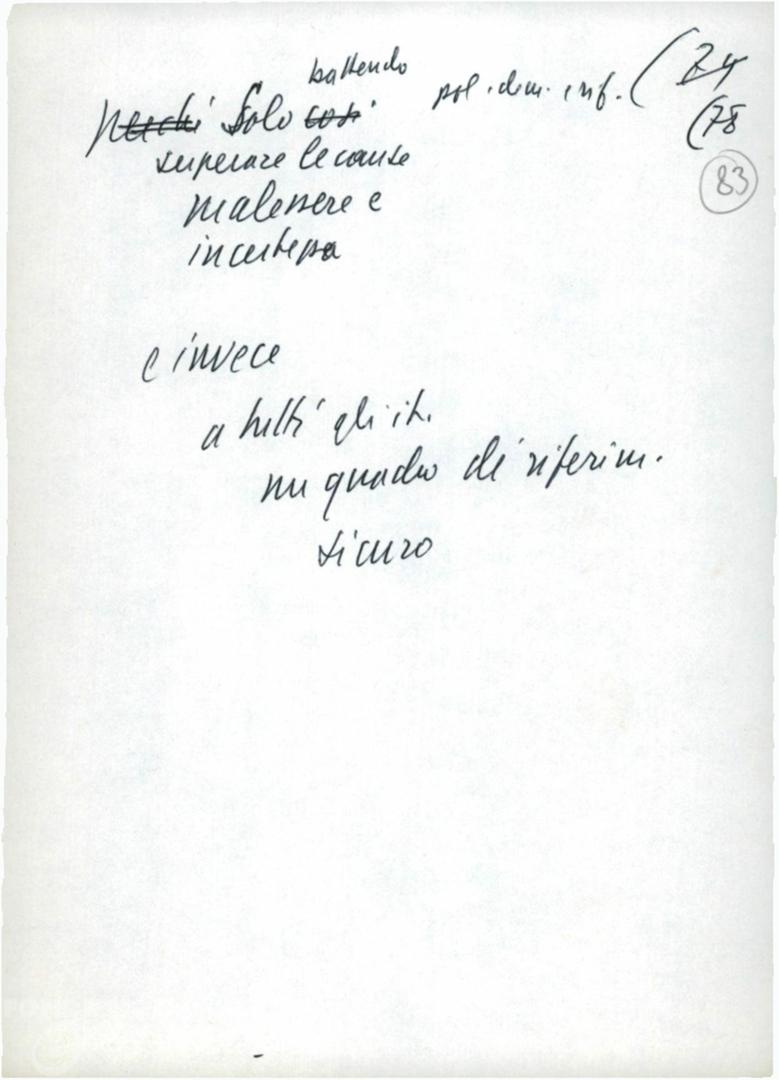 battendo pol. dem. e rif. (74
perché Solo così (78
superare le cause 83
malessere e
incertezza
e invece
a tutti gli it.
un quadro di riferim.
sicuro